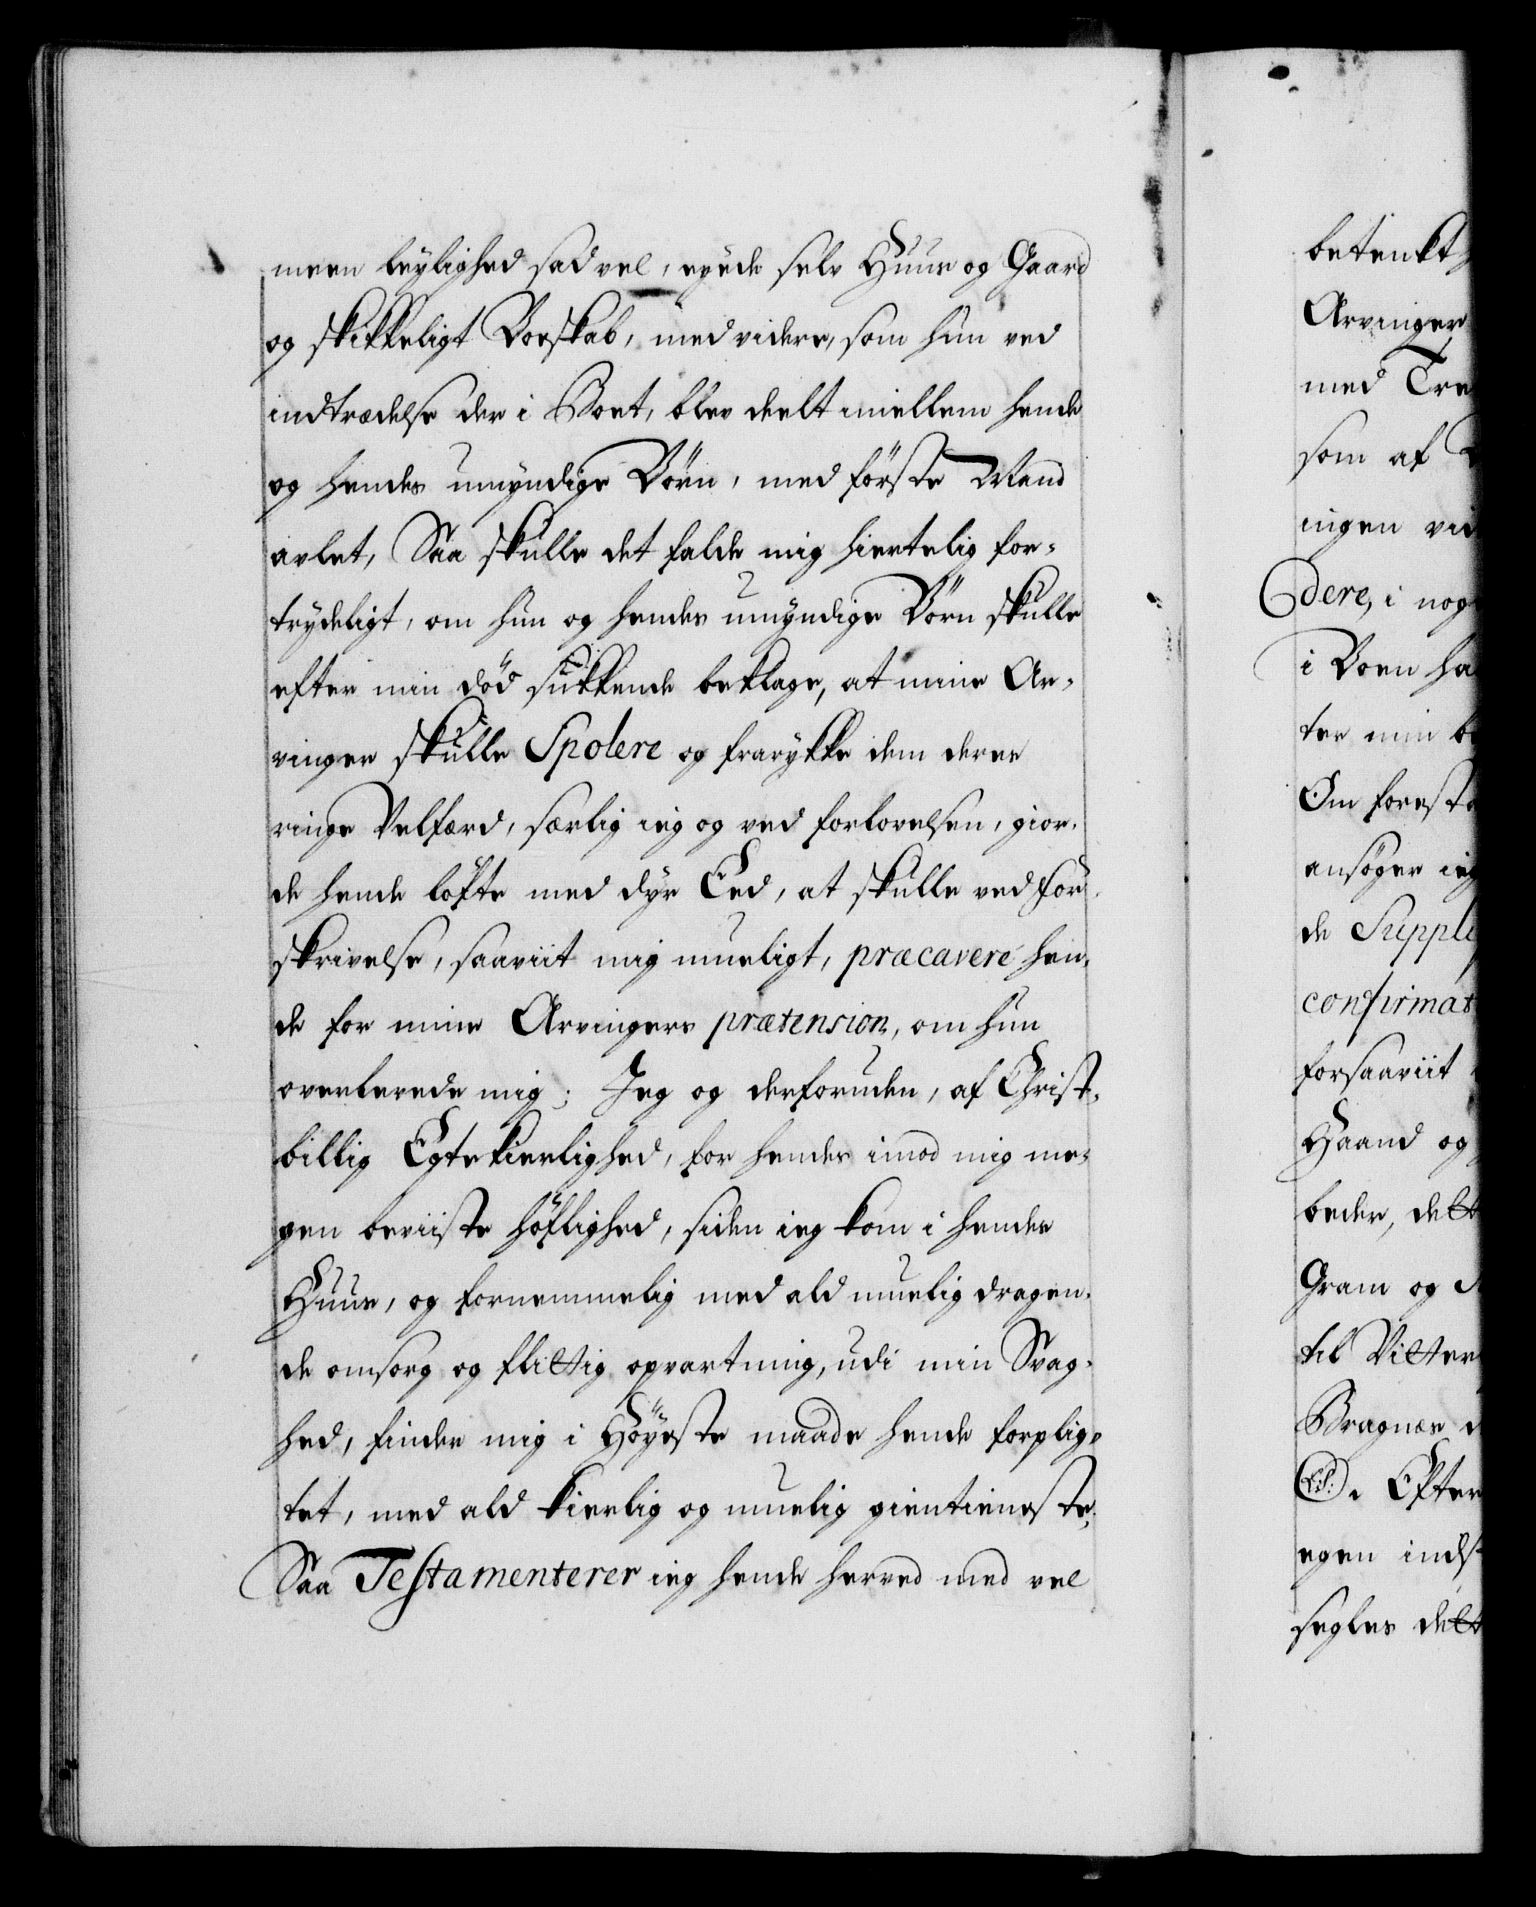 meen leylighed sad vel, eyede selv Huus og Gaard
og skikkeligt Boeskab, med videre, som hun ved
indtrædelse der i Boet, blev deelt imellem hende
og hendes umyndige Börn, med förste Mand
avlet, Saa skulle det falde mig hiertelig for-
trydeligt, om hun og hendes umyndige Börn skulle
efter min död sukkende beklage, at mine Ar-
vinger skulle Spolere og frarykke dem deres
ringe Velfærd, særlig ieg og ved forlovelsen, gior-
de hende löfte med dyr Eed, at skulle ved For-
skrivelse, saaviit mig mueligt, præcavere hen-
de for mine Arvingers prætension, om hun
overlevede mig; Jeg og derforuden, af Christ-
billig Egtekierlighed, for hendes imod mig me-
gen beviiste höflighed, siden ieg kom i hendes
Huus, og fornemmelig med ald muelig dragen-
de omsorg og flittig opvartning, udi min Svag-
hed, finder mig i Höyeste maade hende forplig-
tet, med ald kierlig og muelig gientieneste;
Saa Testamenterer ieg hende herved med vel
betenkt
Arvinger
med Tre
som af
ingen vid
dere, i nog
i Boen ha
ter min be
Om foresta
ansöger ieg
de Suppli
confirmat
forsaaviit
Haand og
beder, dett
Gram og
til Vitter
Bragnæs d
Eil. Efter
egen inds
segles dett